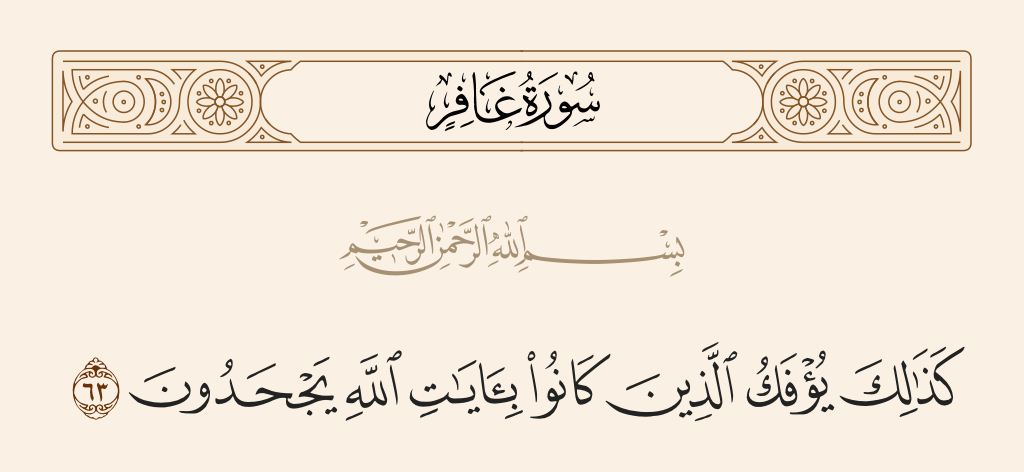 سُورَةُ غَافِرٍ
بِسْمِ ٱللَّهِ ٱلرَّحْمَٰنِ ٱلرَّحِيمِ
كَذَٰلِكَ يُؤْفَكُ ٱلَّذِينَ كَانُوا۟ بِـَٔايَـٰتِ ٱللَّهِ يَجْحَدُونَ ٦٣